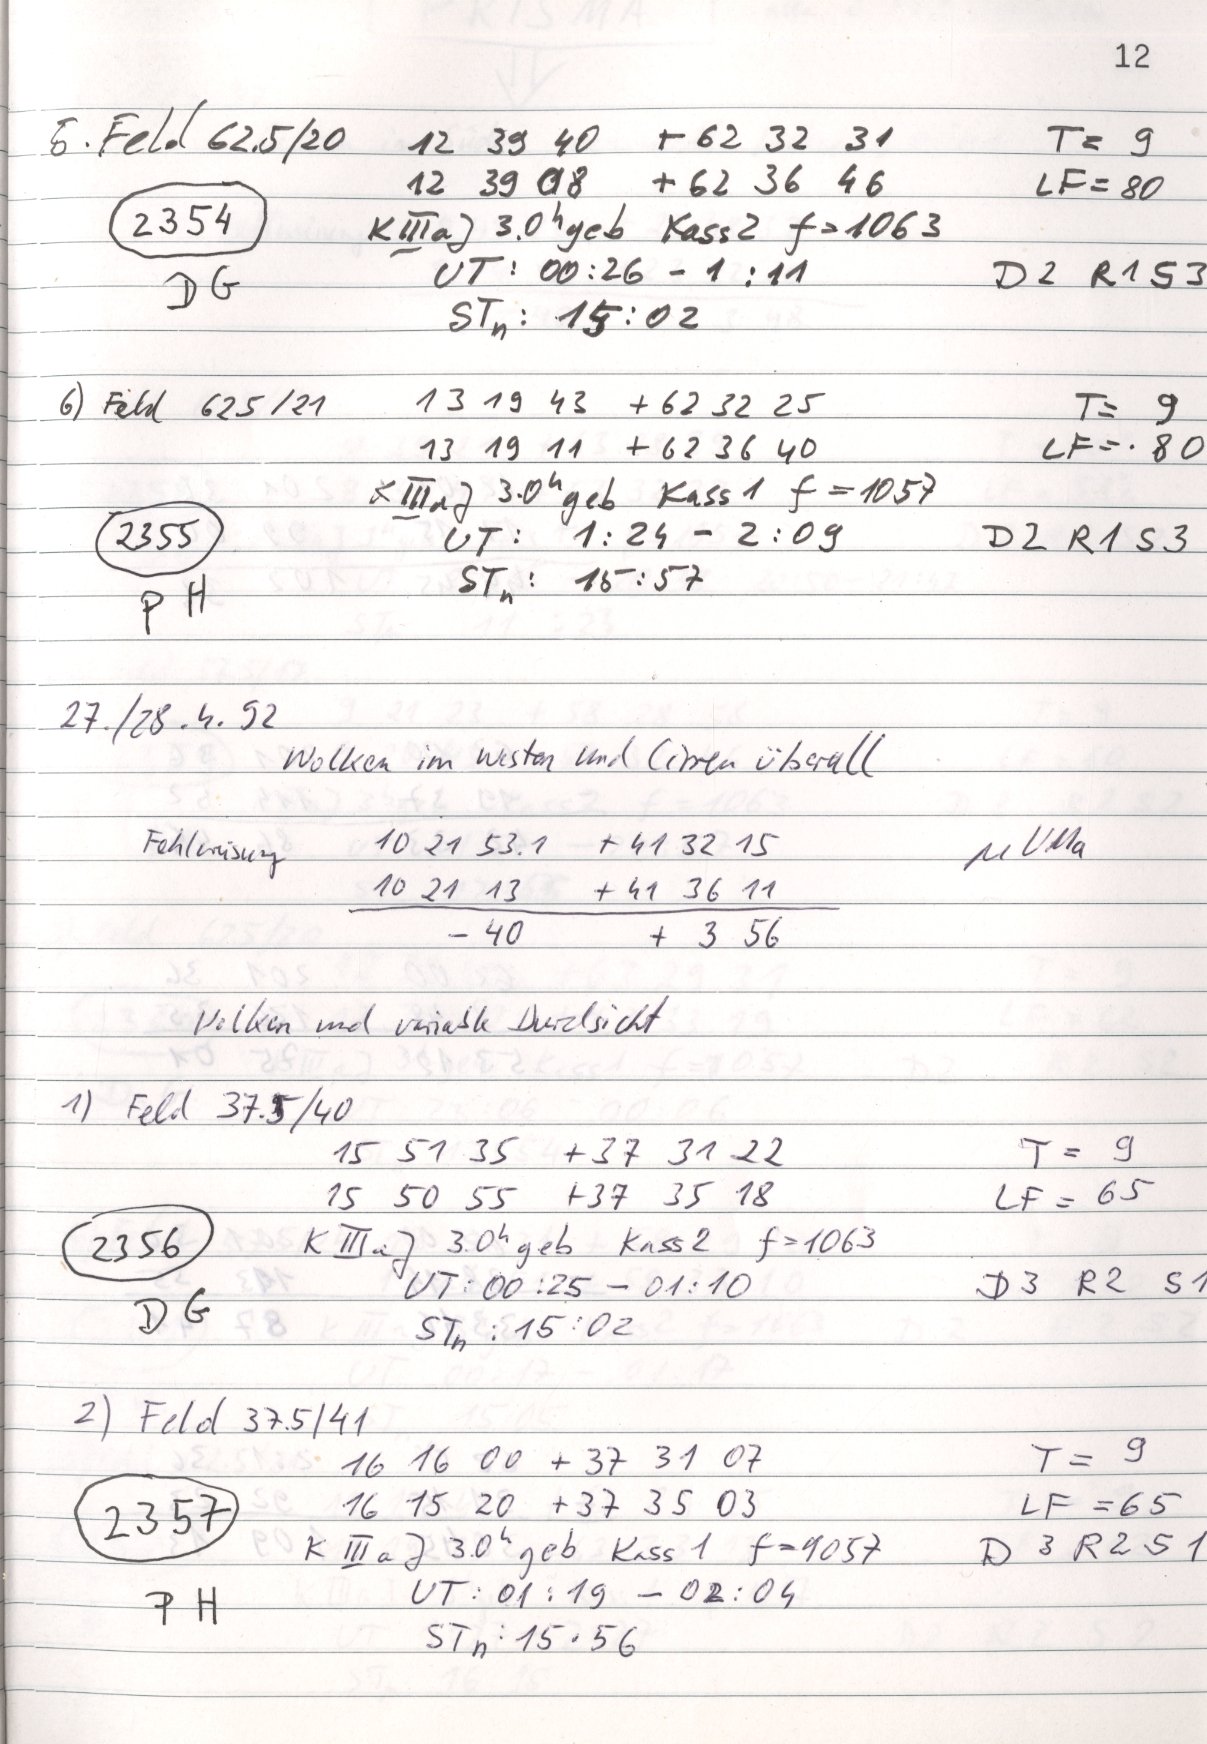 12
5. Feld 62.5/20 12 39 40 + 62 32 31 T = 9
12 39 08 + 62 36 46 LF = 80
2354 K III a J 3.0h geb Kass 2 f = 1063
DG UT: 00:26 - 1:11 D2 R1 S3
STn: 15:02
6) Feld 625/21 13 19 43 + 62 32 25 T = 9
13 19 11 + 62 36 40 LF = 80
K III a J 3.0h geb Kass 1 f = 1057
2355 UT: 1:24 - 2:09 D2 R1 S3
PH STn: 15:57
27./28.4.92
Wolken im Westen und Cirren überall
Fehlweisung 10 21 53.1 + 41 32 15 μ UMa
10 21 13 + 41 36 11
- 40 + 3 56
Wolken und variable Durchsicht
1) Feld 37.5/40
15 51 35 + 37 31 22 T = 9
15 50 55 + 37 35 18 LF = 65
2356 K III a J 3.0h geb Kass 2 f = 1063
DG UT: 00:25 - 01:10 D3 R2 S1
STn: 15:02
2) Feld 37.5/41
16 16 00 + 37 31 07 T = 9
2357 16 15 20 + 37 35 03 LF = 65
K III a J 3.0h geb Kass 1 f = 1057 D3 R2 S1
PH UT: 01:19 - 02:04
STn: 15.56